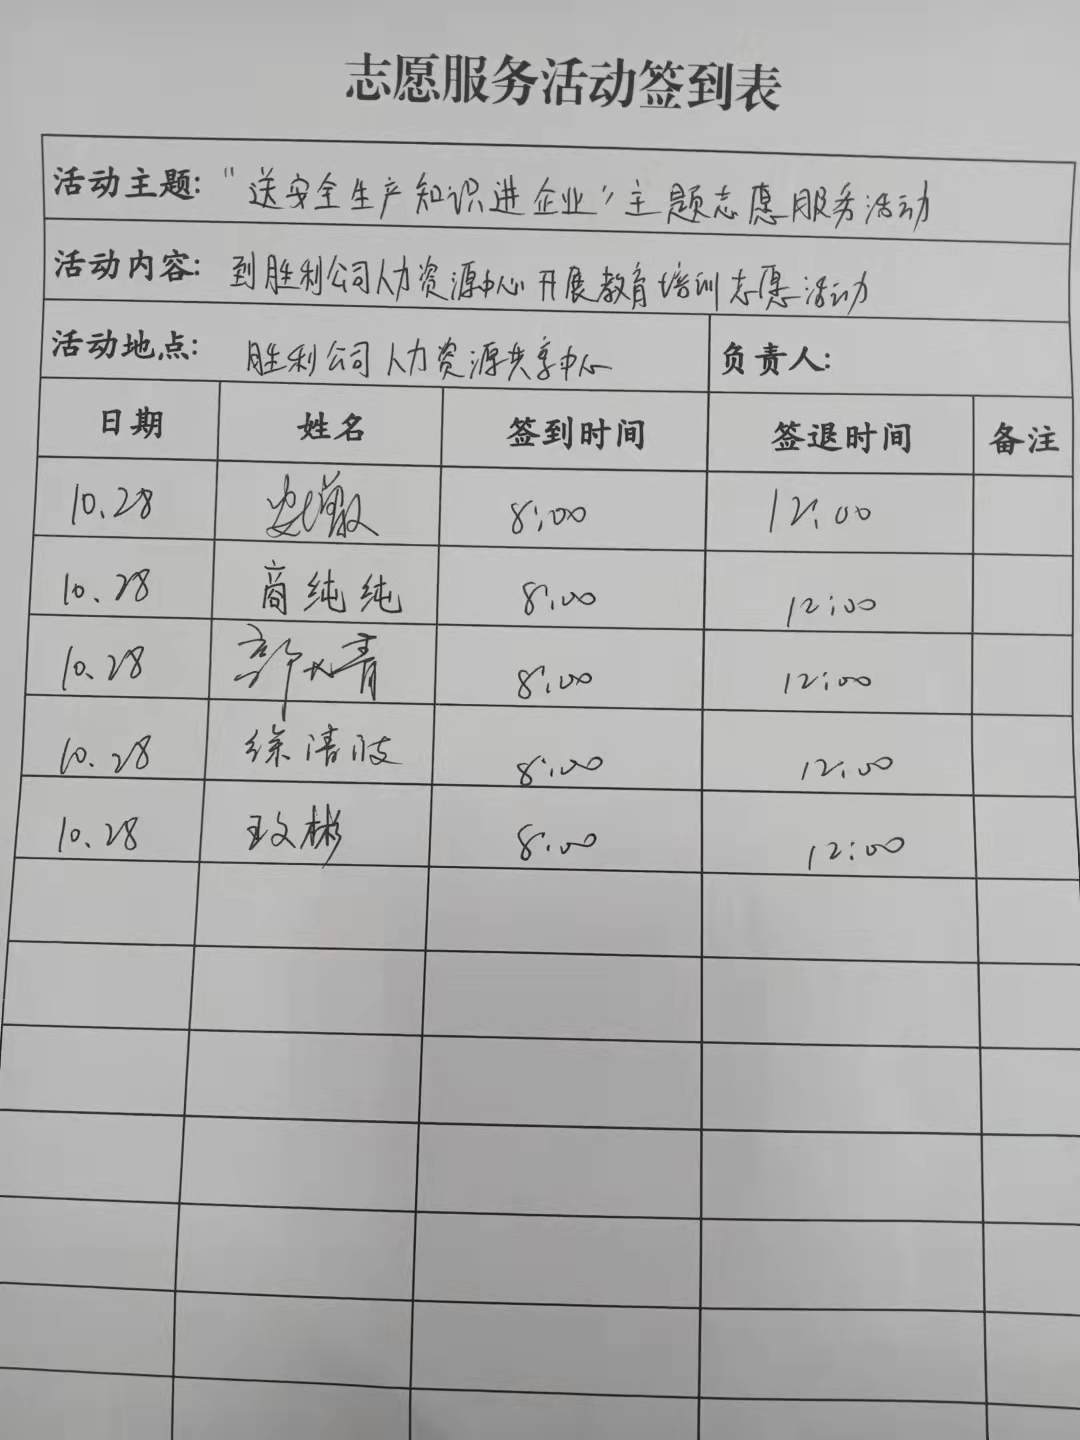 志愿服务活动签到表
活动主题: “送安全生产知识进企业”主题志愿服务活动
活动内容: 到胜利公司人力资源中心开展教育培训志愿活动
活动地点: 胜利公司人力资源共享中心 负责人:
日期 姓名 签到时间 签退时间 备注
10.28 8:00 12:00
10.28 商纯纯 8:00 12:00
10.28 8:00 12:00
10.28 徐清波 8:00 12:00
10.28 王文彬 8:00 12:00